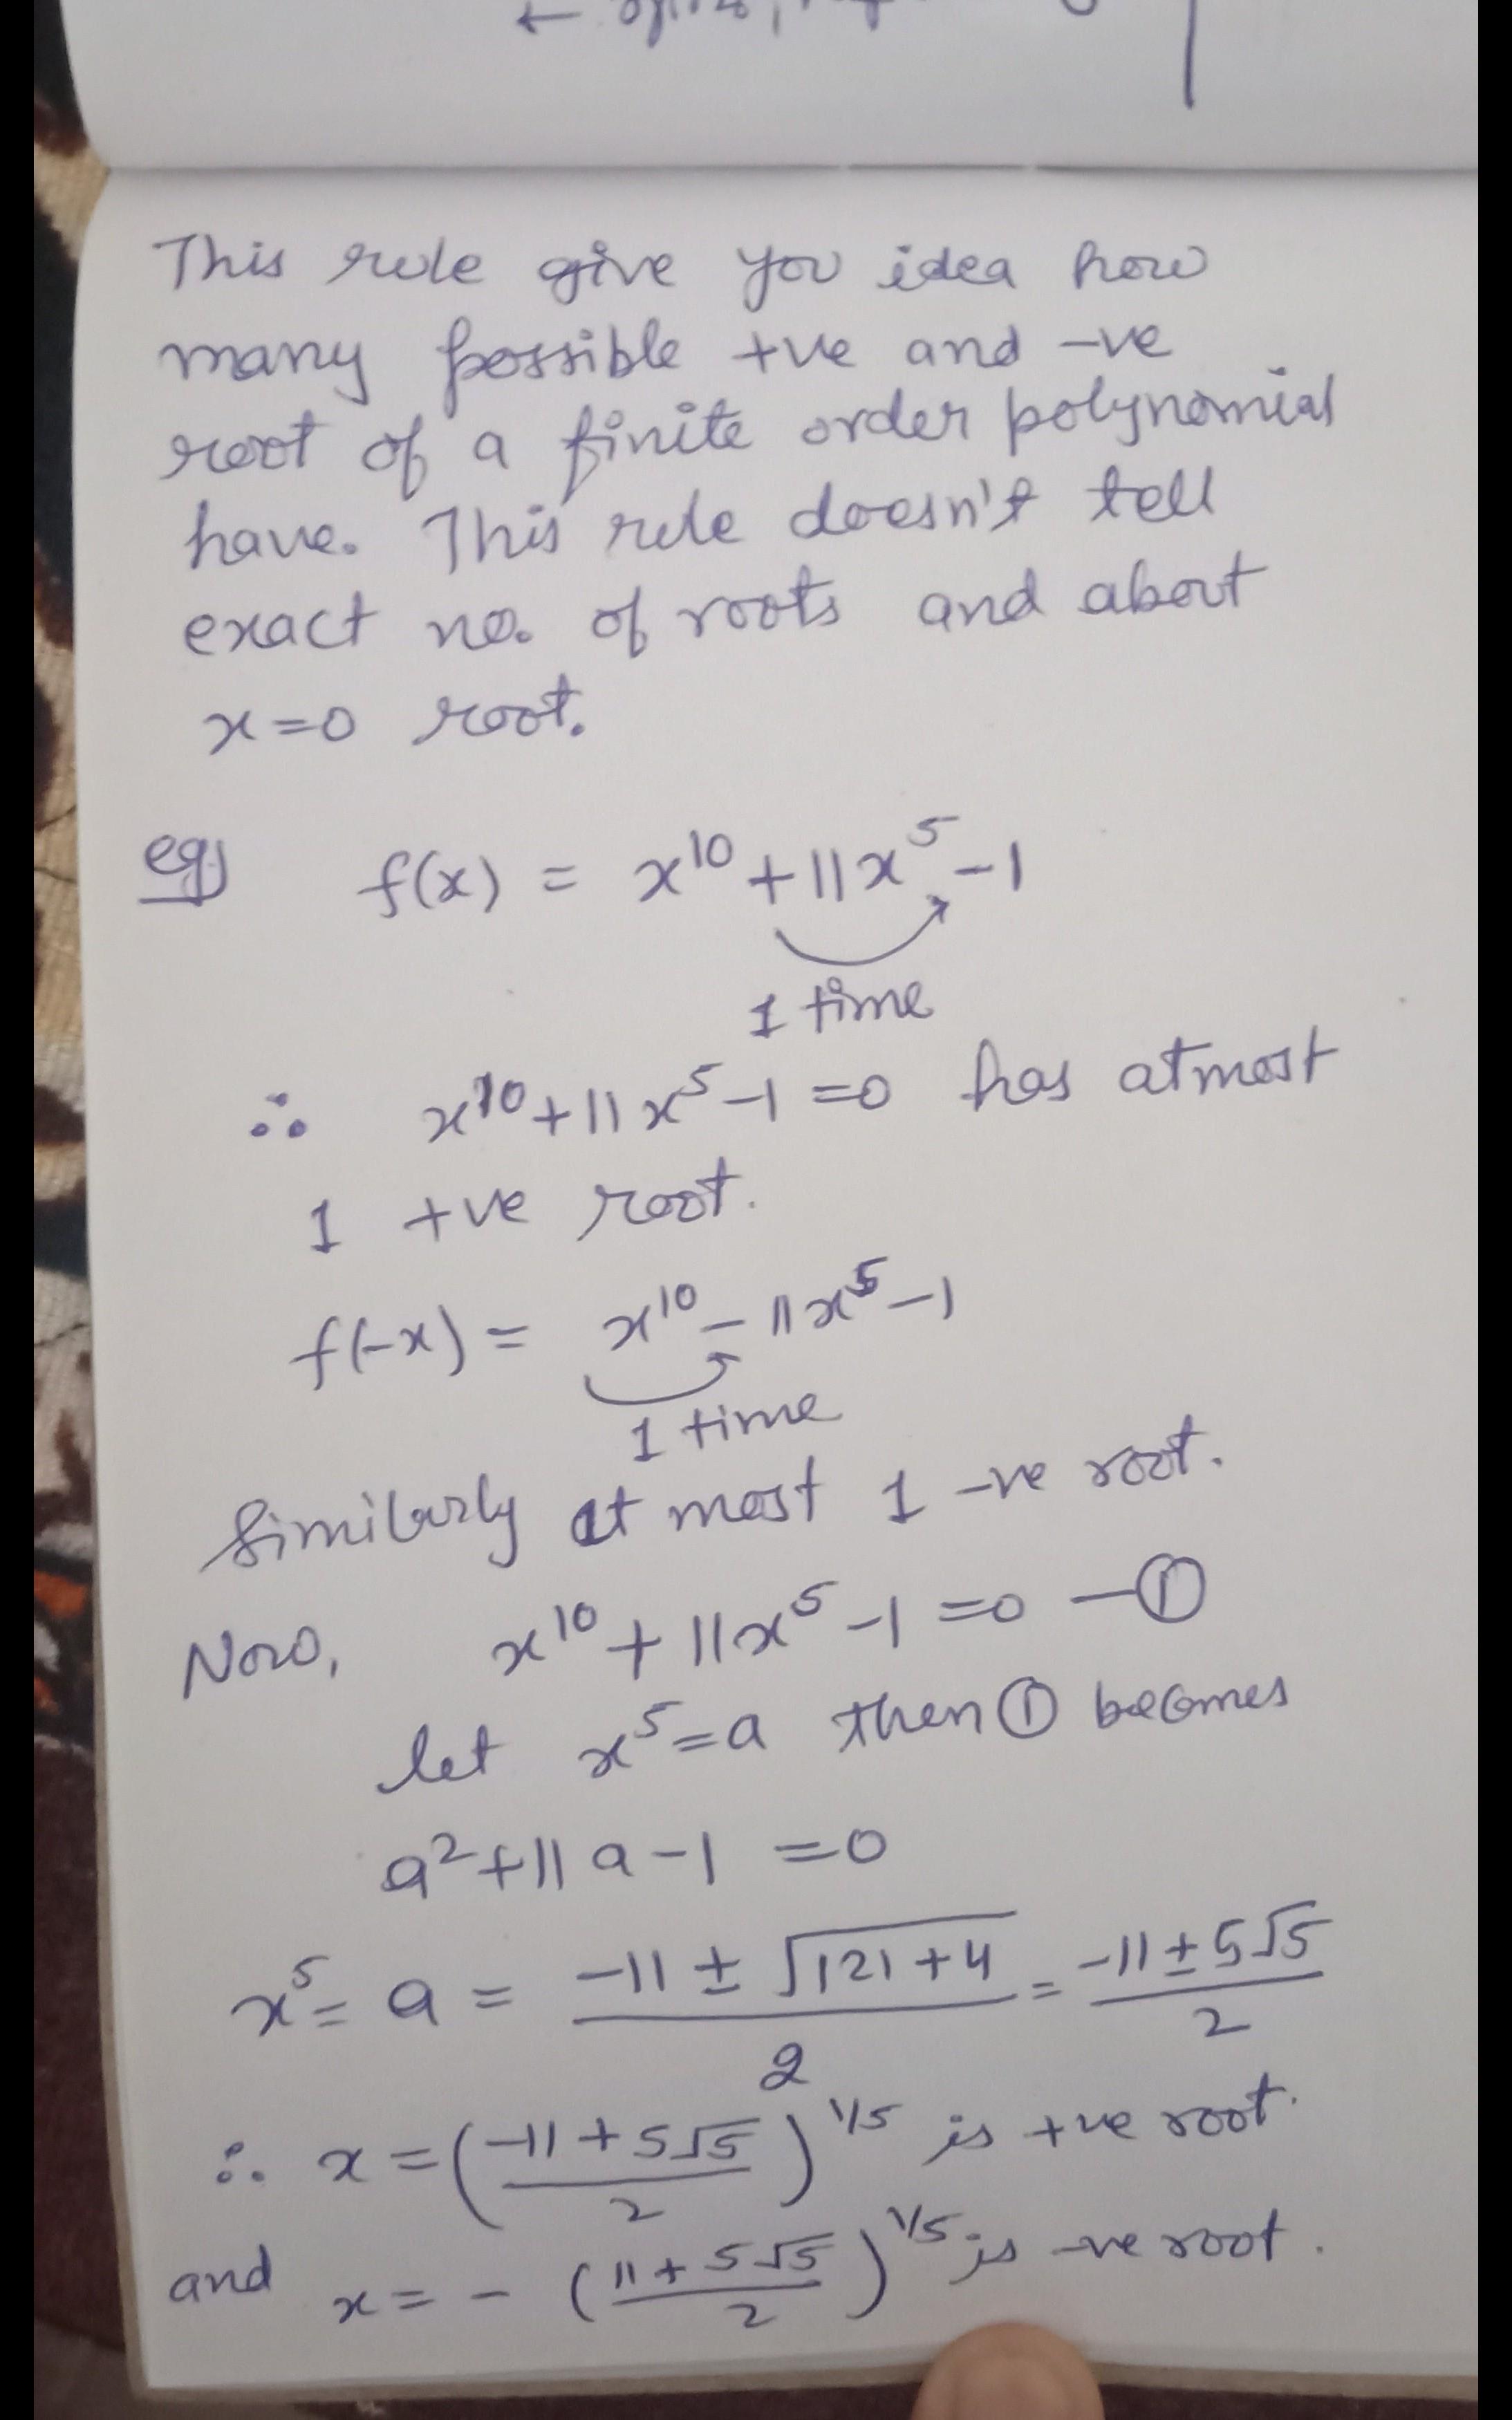 This rule give you idea how
many possible +ve and -ve
root of a finite order polynomial
have. This rule doesn't tell
exact no. of roots and about
x=0 root.
eg) f(x) = x¹⁰+11x⁵-1
1 time
∴ x¹⁰+11x⁵-1=0 has atmost
1 +ve root.
f(-x) = x¹⁰-11x⁵-1
1 time
Similarly at most 1 -ve root.
Now, x¹⁰+11x⁵-1=0 —①
let x⁵=a then ① becomes
a²+11a-1=0
x⁵= a = (-11 ± √(121+4))/2 = (-11±5√5)/2
∴ x = ((-11+5√5)/2)^(1/5) is +ve root.
and x = - ((11+5√5)/2)^(1/5) is -ve root.